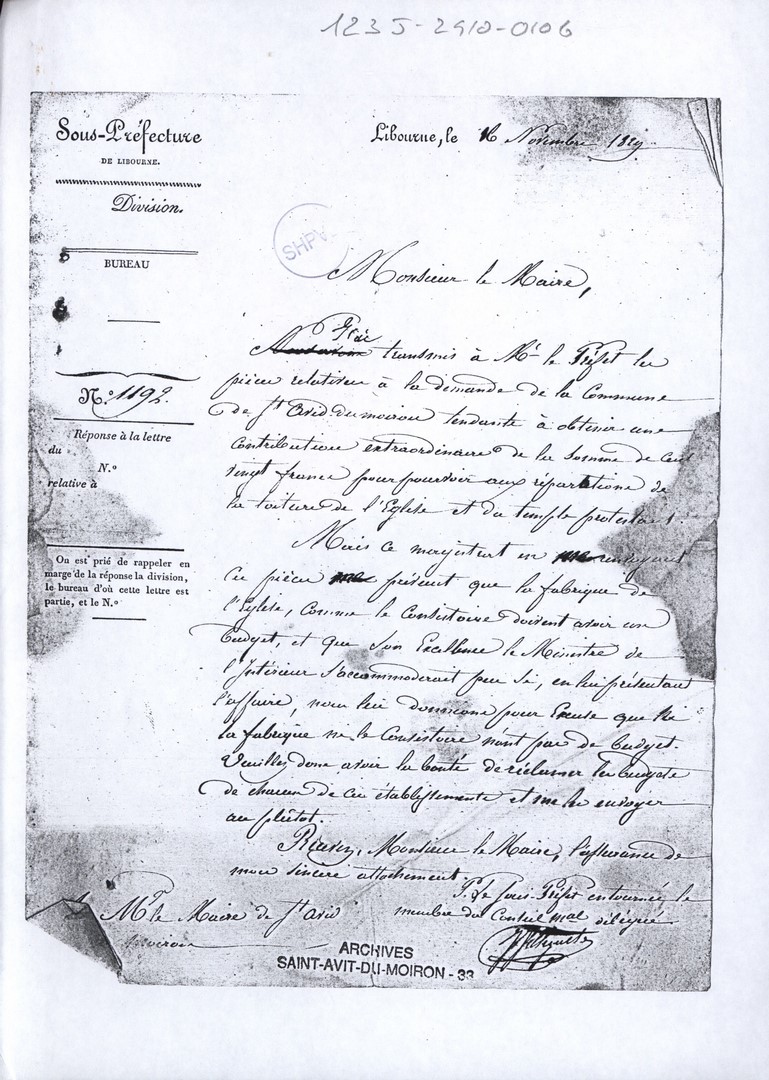 123 J-2910-0106
Sous-Préfecture
DE LIBOURNE.
Division.
BUREAU
N.° 1192.
Réponse à la lettre
du
N.°
relative à
On est prié de rappeler en
marge de la réponse la division,
le bureau d'où cette lettre est
partie, et le N.°
Libourne, le 16 Novembre 1819
SHPV
Monsieur le Maire,
J'ai
transmis à Mr le Préfet les
pièces relatives à la demande de la Commune
de St Avid du moiron tendante à obtenir une
contribution extraordinaire de la somme de cent
vingt francs pour pourvoir aux réparations de
la toiture de l'Eglise et du temple protestant.
Mais ce magistrat en renvoyant
ces pièces prévient que la fabrique de
l'Eglise, comme le Consistoire doivent avoir un
budget, et que Son Excellence le Ministre de
l'Intérieur s'accommoderait peu si, en lui présentant
l'affaire, nous lui donnions pour Excuse que ni
la fabrique ni le Consistoire n'ont pas de budget.
Veuillez donc avoir la bonté de réclamer les budgets
de chacun de ces établissements et me les envoyer
au plutôt.
Recevez, Monsieur le Maire, l'assurance de
mon sincère attachement.
P. le Sous-Préfet en tournée le
membre du Conseil mal délégué
Mr le Maire de St Avid
moiron
ARCHIVES
SAINT-AVIT-DU-MOIRON - 33